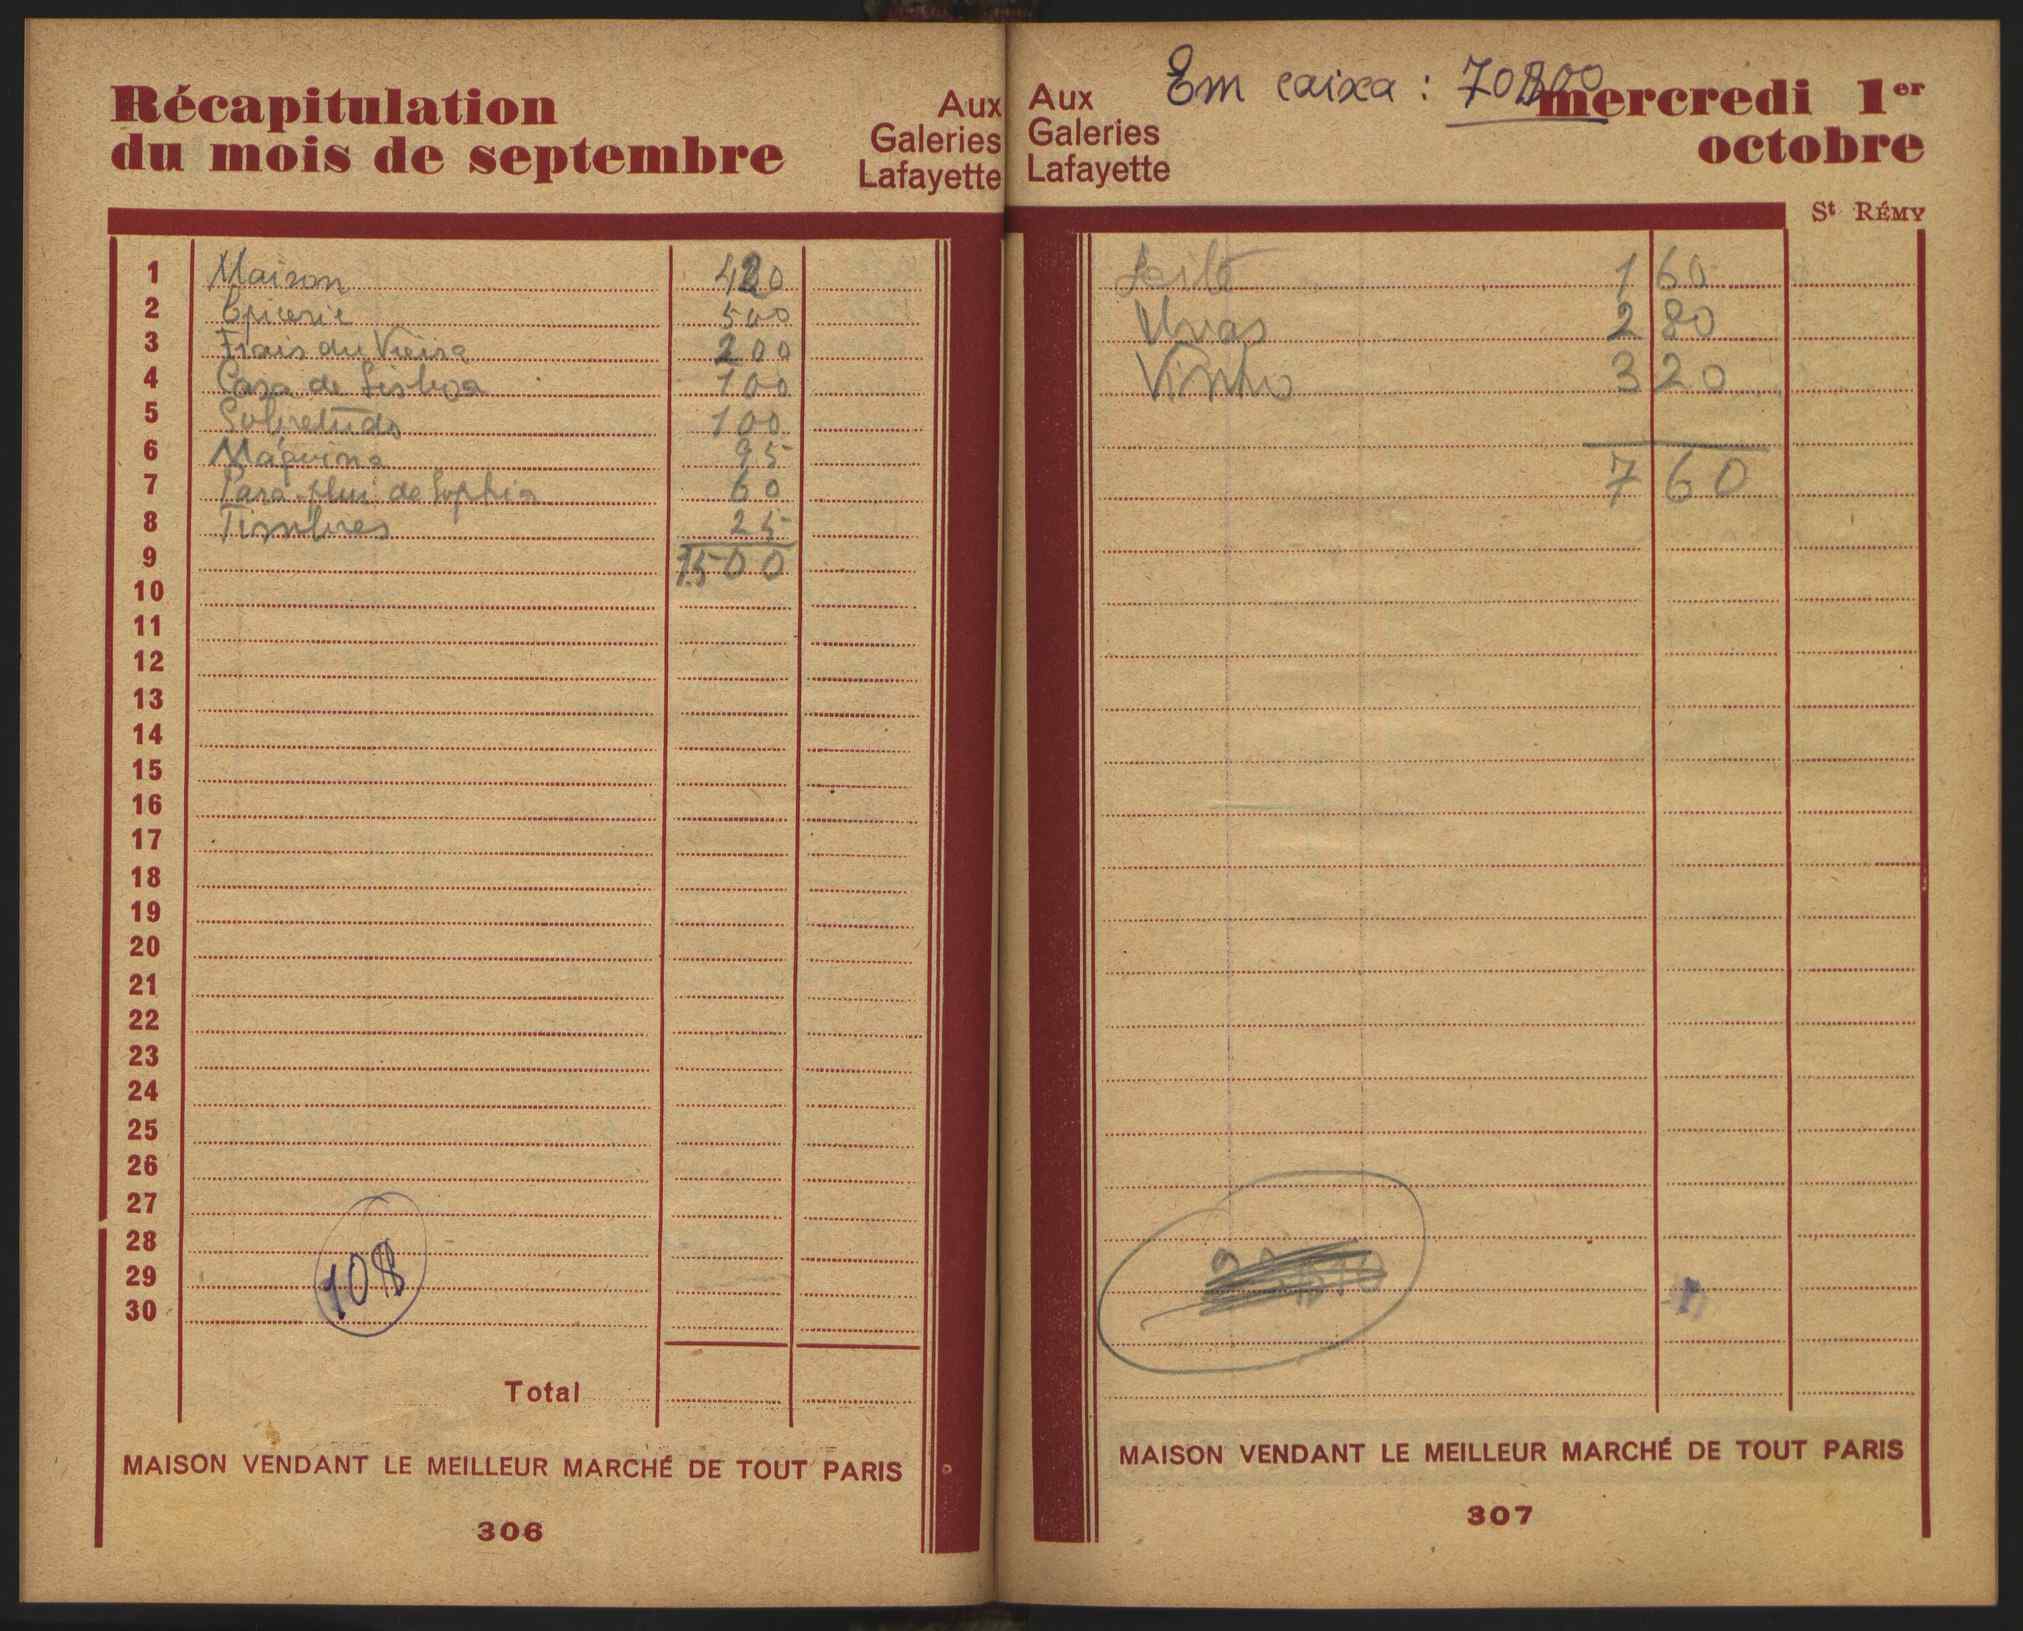 Récapitulation
du mois de septembre
Aux
Galeries
Lafayette
1 Maison 420
2 Epicerie 500
3 Frais du Vieira 200
4 Casa de Lisboa 100
5 Sobretudo 100
6 Máquina 95
7 Para-plui de Sophia 60
8 Timbres 25
9 1500
10
11
12
13
14
15
16
17
18
19
20
21
22
23
24
25
26
27
28
29 10$
30
Total
MAISON VENDANT LE MEILLEUR MARCHÉ DE TOUT PARIS
306
Em caixa : 70$00
Aux
Galeries
Lafayette
mercredi 1er
octobre
St RÉMY
Leite 1 60
Uvas 2 80
Vinho 3 20
7 60
MAISON VENDANT LE MEILLEUR MARCHÉ DE TOUT PARIS
307